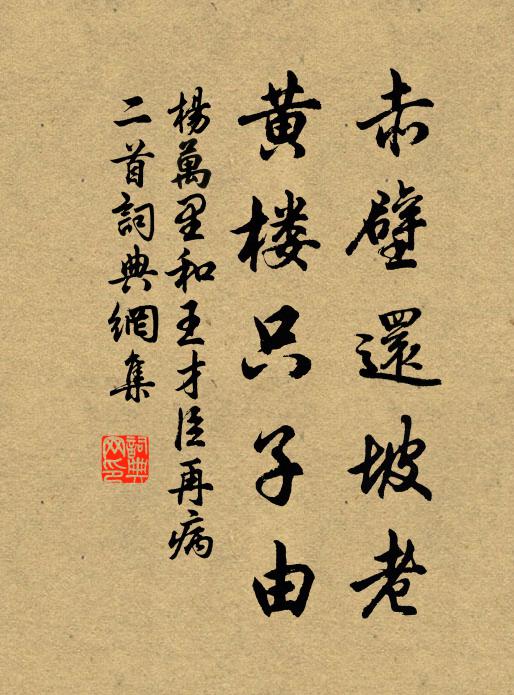 赤壁還坡老
黄楼只子由
楊萬里和王才臣再病
二首詞典網集
詞典
网印